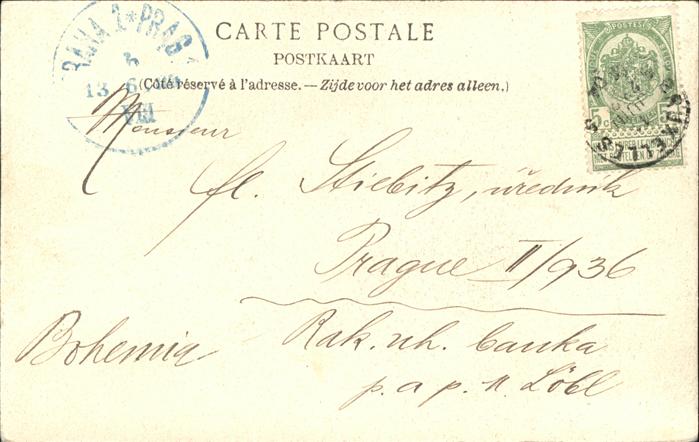 CARTE POSTALE
POSTKAART
(Côté réservé à l'adresse. — Zijde voor het adres alleen.)
PRAHA 1 * PRAG
13
VIII
POSTES
5 c
BRUXELLES
Monsieur
fl. Stiebitz, úředník
Prague II/936
Bohemia
Rak. uh. banka
p. a p. n. Löbl